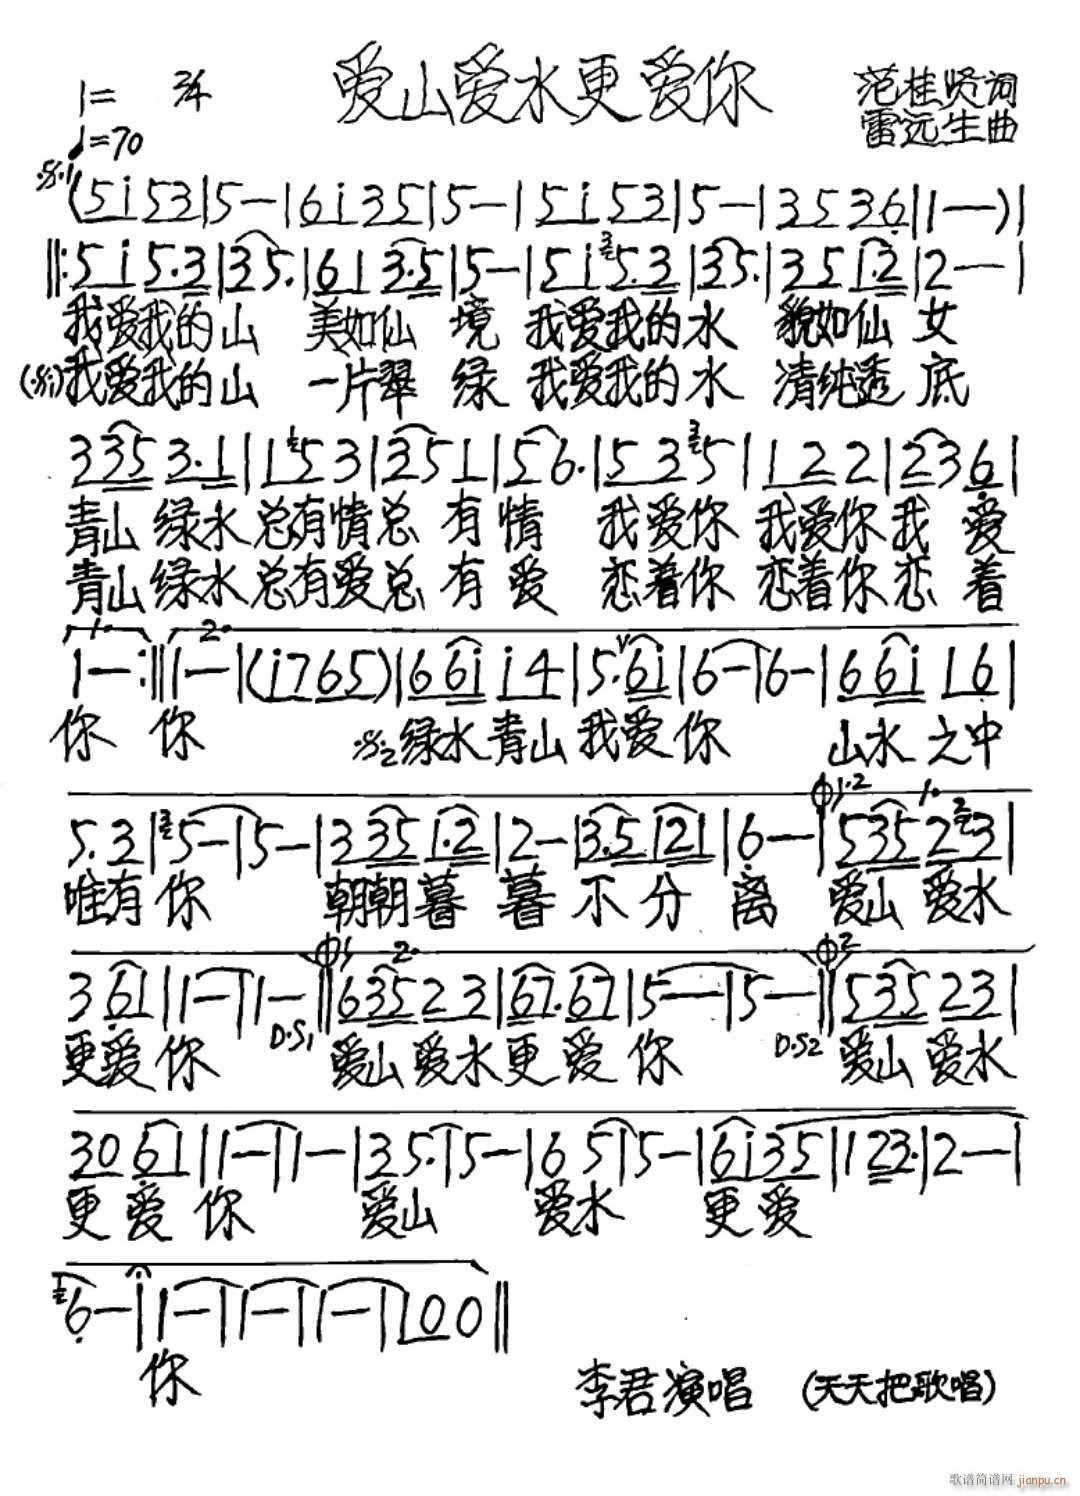 爱山爱水更爱你
1= 2/4
♩=70
范桂贤词
雷远生曲
(5 i 5 3 | 5 — | 6 i 3 5 | 5 — | 5 i 5 3 | 5 — | 3 5 3 6 | 1 — ) |
‖: 5 i 5·3 | 3 5· | 6 1 3·5 | 5 — | 5 i 5·3 | 3 5· | 3 5 1·2 | 2 — |
我爱我的山 美如仙 境 我爱我的水 貌如仙 女
我爱我的山 一片翠 绿 我爱我的水 清纯透 底
3 3 5 3·1 | 1 5 3 | 3 5 1 | 5 6· | 5 3 5 | 1 2 2 | 2 3 6 |
青山 绿水 总有情总 有 情 我爱你 我爱你我 爱
青山绿水 总有爱总 有 爱 恋着你 恋着你恋 着
1 — :‖ 1 — | (i 7 6 5) | 6 6 i i 4 | 5· 6 i | 6 — | 6 — | 6 6 i 1 6 |
你 你 绿水青山我爱你 山水之中
5· 3 | 5 — | 5 — | 3 3 5 1·2 | 2 — | 3·5 1 2 1 | 6 — | 5 3 5 2 3 |
唯有你 朝朝暮 暮 不 分 离 爱山 爱水
3 6 1 | 1 — | 1 — ‖ 6 3 5 2 3 | 6 7·6 7 | 5 — | 5 — ‖ 5 3 5 2 3 |
D.S1
D.S2
更爱 你 爱山 爱水更爱 你 爱山 爱水
3 0 6 1 | 1 — | 1 — | 3 5· | 5 — | 6 5 | 5 — | 6 i 3 5 | 1 2 3· | 2 — |
更 爱 你 爱山 爱水 更爱
6 — | 1 — | 1 — | 1 — | 1 0 0 ‖
你
李君演唱 (天天把歌唱)
歌谱简谱网 jianpu.cn